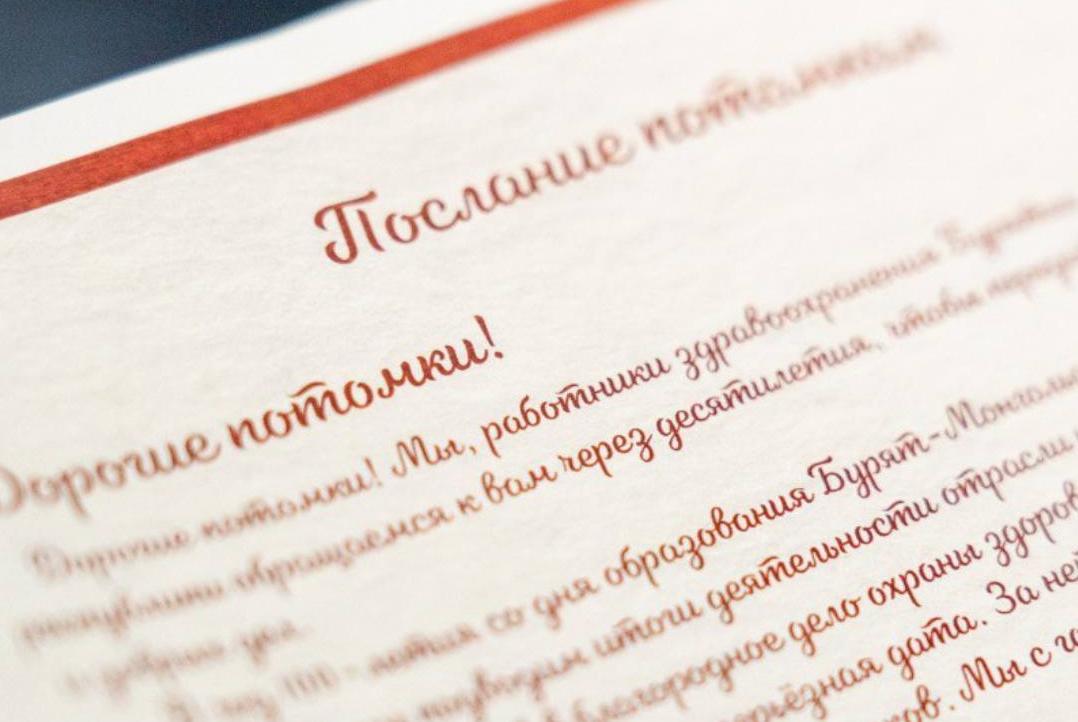 Послание потомкам
Дорогие потомки!
Дорогие потомки! Мы, работники здравоохранения Бурятии
республики обращаемся к вам через десятилетия, чтобы
о добрых дел.
В год 100-летия со дня образования Бурят-Монгольс
подводим итоги деятельности отрасли
благородное дело охраны здоров
серьёзная дата. За не
Мы с